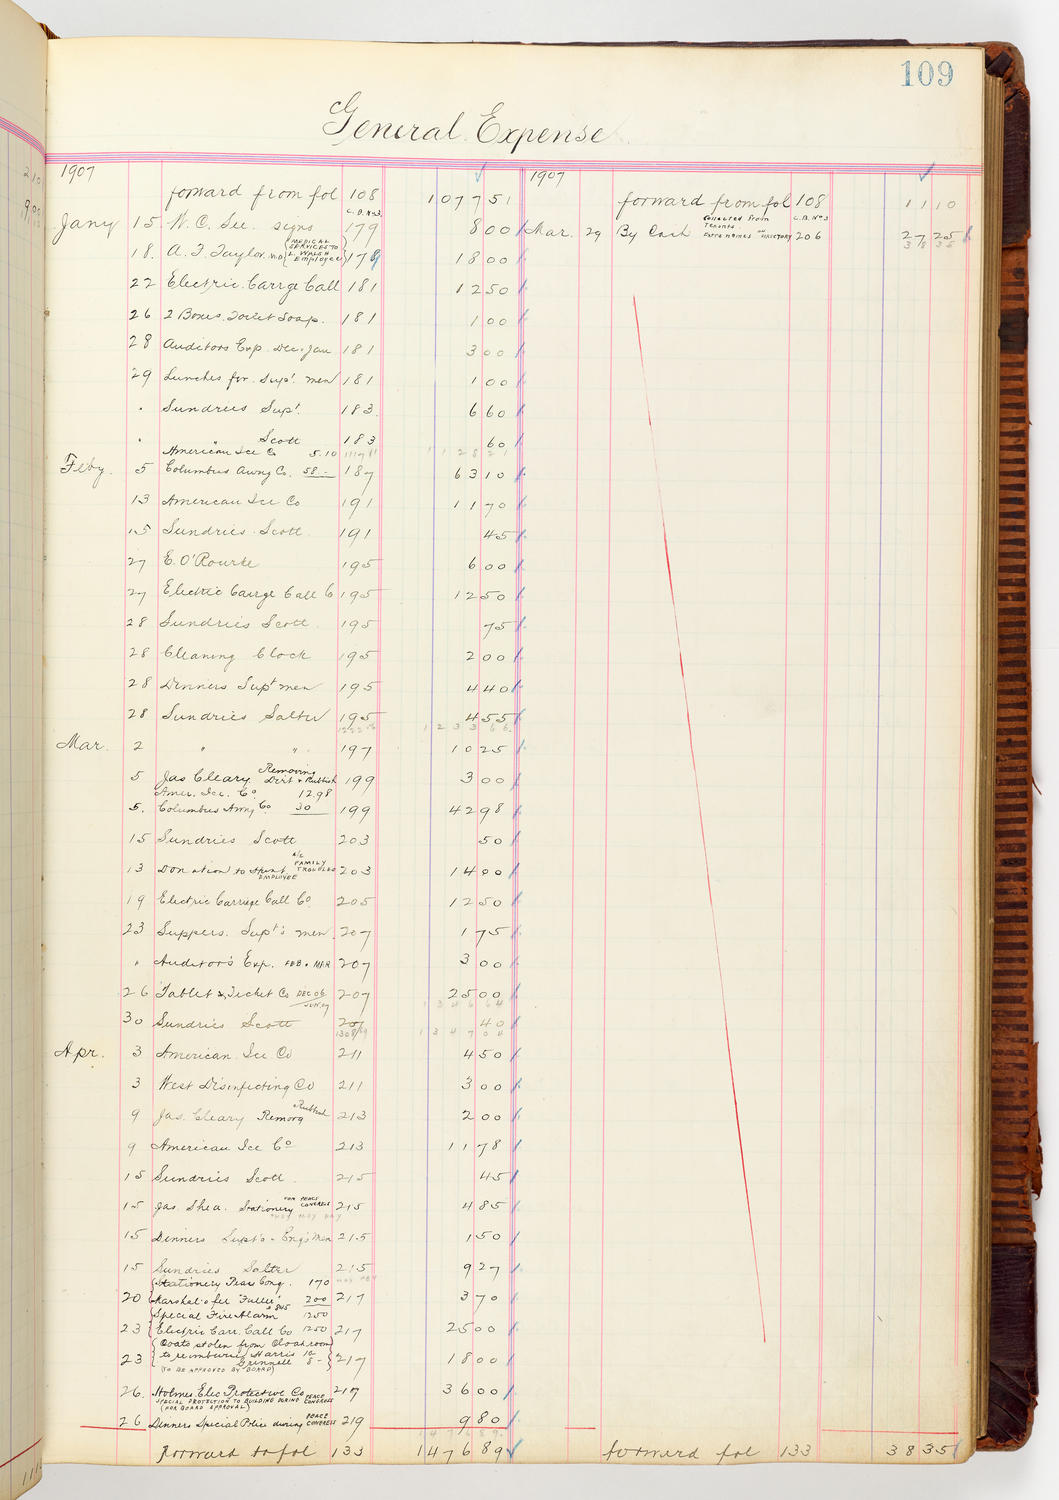 109
General Expense
1907
forward from fol 108 1077 51
C.B. No 3
Jany 15 W. C. Lee. signs 179 8 00
18. A. F. Taylor. M.D. (MEDICAL SERVICES TO L. WALSH Employee) 179 18 00
22 Electric. Carrge Call 181 12 50
26 2 Boxes. Toilet Soap. 181 1 00
28 Auditors Exp. Dec. Jan 181 3 00
29 Lunches for. Supt. men 181 1 00
" Sundries Supt. 183. 6 60
" " Scott 183 60
1 1 2 8 2 1
American Ice Co 5.10
Feby. 5 Columbus Awng Co. 58.- 187 63 10
13 American Ice Co 191 11 70
15 Sundries. Scott. 191 45
27 E. O'Rourke 195 6 00
27 Electric Carrge Call Co 195 12 50
28 Sundries Scott. 195 75
28 Cleaning Clock 195 2 00
28 Dinners Supt men 195 4 40
28 Sundries Salter 195 4 55
1 2 3 3 6 6
Mar. 2 " " 197 10 25
5 Jas Cleary Removing Dirt & Rubbish 199 3 00
Amer. Ice. Co 12.98
5. Columbus Awng Co 30 199 42 98
15 Sundries Scott 203 50
13 Donation to Hunt EMPLOYEE A/C FAMILY TROUBLES 203 14 00
19 Electric Carriage Call Co 205 12 50
23 Suppers. Supt's men. 207 1 75
" Auditor's Exp. FEB. & MAR 207 3 00
26 Tablet & Ticket Co DEC 06 JUN. 07 207 25 00
1 3 4 6 6 4
30 Sundries Scott 207 40
1 3 4 7 0 4
Apr. 3 American. Ice Co 211 4 50
3 West Disinfecting Co 211 3 00
9 Jas. Cleary Removg Rubbish 213 2 00
9 American Ice Co 213 11 78
15 Sundries Scott. 215 45
15 Jas. Shea. Stationery FOR PEACE CONGRESS 215 4 85
15 Dinners Supt's - Eng's Men 215 1 50
15 Sundries Salter 215 9 27
Stationery Peace Cong. 1 70
20 Marshal's fee "Fuller" 2 00 217 3 70
Special Fire Alarm 12 50
23 Electric Carr. Call Co 12 50 217 25 00
Coats stolen from Cloak room
23 to reimbursing Harris 10 Grinnell 8 - 217 18 00
(TO BE APPROVED BY BOARD)
26. Holmes Elec Protective Co PEACE CONGRESS 217 36 00
SPECIAL PROTECTION TO BUILDING DURING
(FOR BOARD APPROVAL)
26 Dinners Special Police during PEACE CONGRESS 219 9 80
1 4 7 6 8 9
forward to fol 133 1476 89
1907
forward from fol 108 11 10
C.B. No 3
Mar. 29 By Cash Collected From Tenants. Extra names on DIRECTORY 206 27 25
3 8 3 5
forward fol 133 38 35